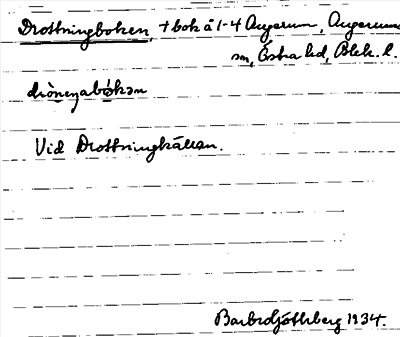 Drottningboken, + bok å 1-4 Augerum, Augerums
sn, Östra hd, Blek. l.
drònenabókən
Vid Drottningkällan.
Barbro Söderberg 1934.